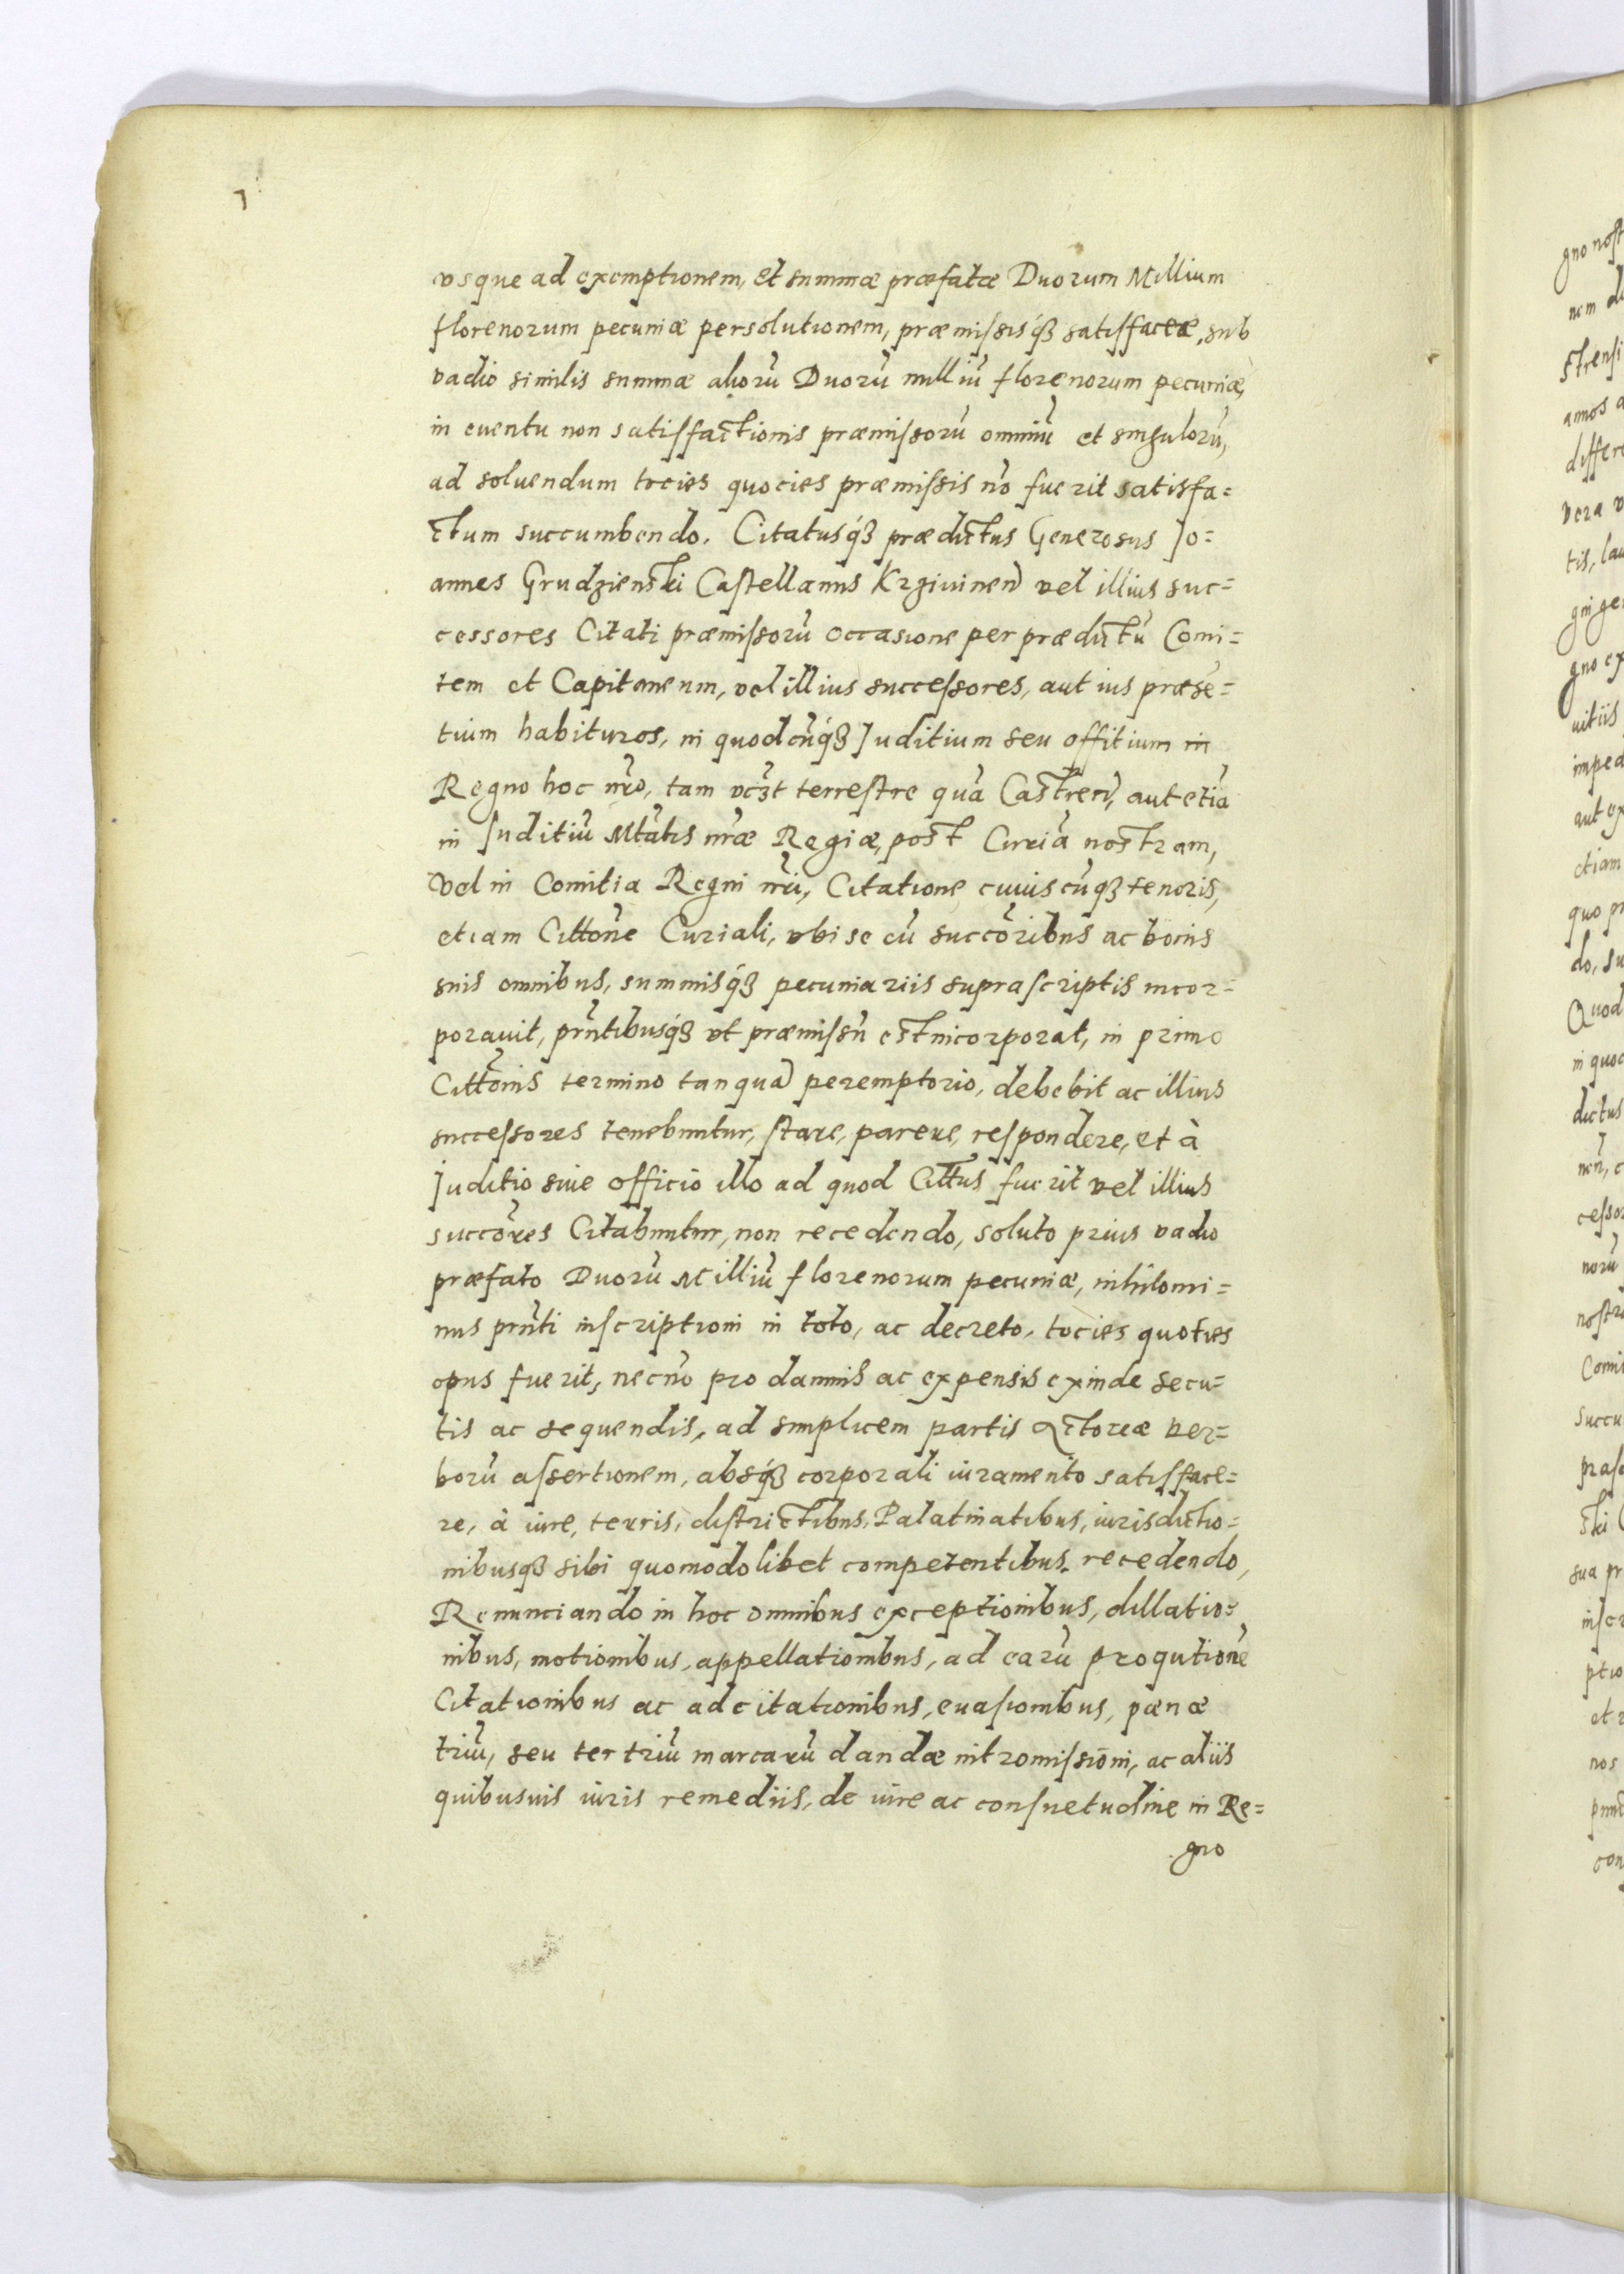 vsque ad exemptionem, et summæ præfatæ Duorum Millium
florenorum pecuniæ persolutionem, præmissisq́ꝫ satisfaceē, sub
vadio similis summæ alioru͂ Duoru͂ milliu͂ florenorum pecuniæ,
in euentu non satisfactionis præmissoru͂ omniu͂ et singuloru͂,
ad soluendum tocies quocies præmissis no͂ fuerit satisfa=
ctum succumbendo. Citatusq́ꝫ prædictus Generosus Jo=
annes Grudzienski Castellanus Krziwinen͂ vel illius suc=
cessores Citati præmissoru͂ occasione per prædictu͂ Comi=
tem et Capitaneum, vel illius successores, aut ius præse͂=
tium habituros, in quodcu͂q́ꝫ Juditium seu offitium in
Regno hoc nr͂o, tam vcꝫt terrestre qua͂ Castren͂, aut etia͂
in Juditiu͂ Mta͂tis nr͂æ Regiæ, post Curia͂ nostram,
Vel in Comitia Regni nr͂i, Citatione cuiuscu͂qꝫ tenoris,
etiam Citto͂ne Curiali, vbi se cu͂ succo͂ribus ac bonis
suis omnibus, summisq́ꝫ pecuniariis suprascriptis incor=
porauit, prn͂tibusq́ꝫ vt præmissu͂ est incorporat, in primo
Citto͂nis termino tanqua͂ peremptorio, debebit ac illius
successores tenebuntur, stare, parere, respondere, et à
Juditio siue officio illo ad quod Citt͂us fuerit vel illius
succo͂res Citabuntur, non recedendo, soluto prius vadio
præfato Duoru͂ Milliu͂ florenorum pecuniæ, nihilomi=
nus prn͂ti inscriptioni in toto, ac decreto, tocies quoties
opus fuerit, necno͂ pro damnis ac expensis exinde secu=
tis ac sequendis, ad simplicem partis Actoreæ ver=
boru͂ assertionem, absq́ꝫ corporali iuramento satisface=
re, à iure, terris, districtibus, Palatinatibus, iurisdictio=
nibusqꝫ sibi quomodolibet competentibus, recedendo,
Renunciando in hoc omnibus exceptionibus, dillatio=
nibus, motionibus, appellationibus, ad earu͂ proqutione͂
Citationibus ac adcitationibus, euasionibus, pænæ
triu͂, seu ter triu͂ marcaru͂ dandæ intromissio͂ni, ac aliis
quibusuis iuris remediis, de iure ac consuetudine in Re=
gno